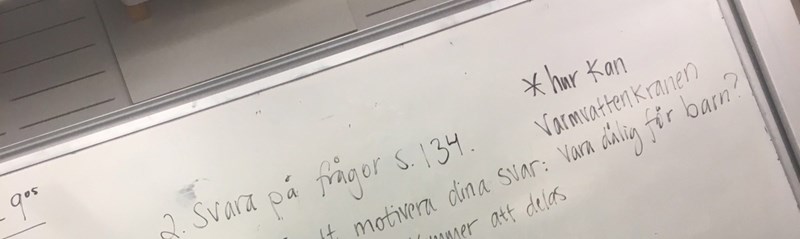 - 9⁰⁵
2. Svara på frågor s. 134.
motivera dina svar:
att delas
* hur kan
varmvattenkranen
vara dålig för barn?